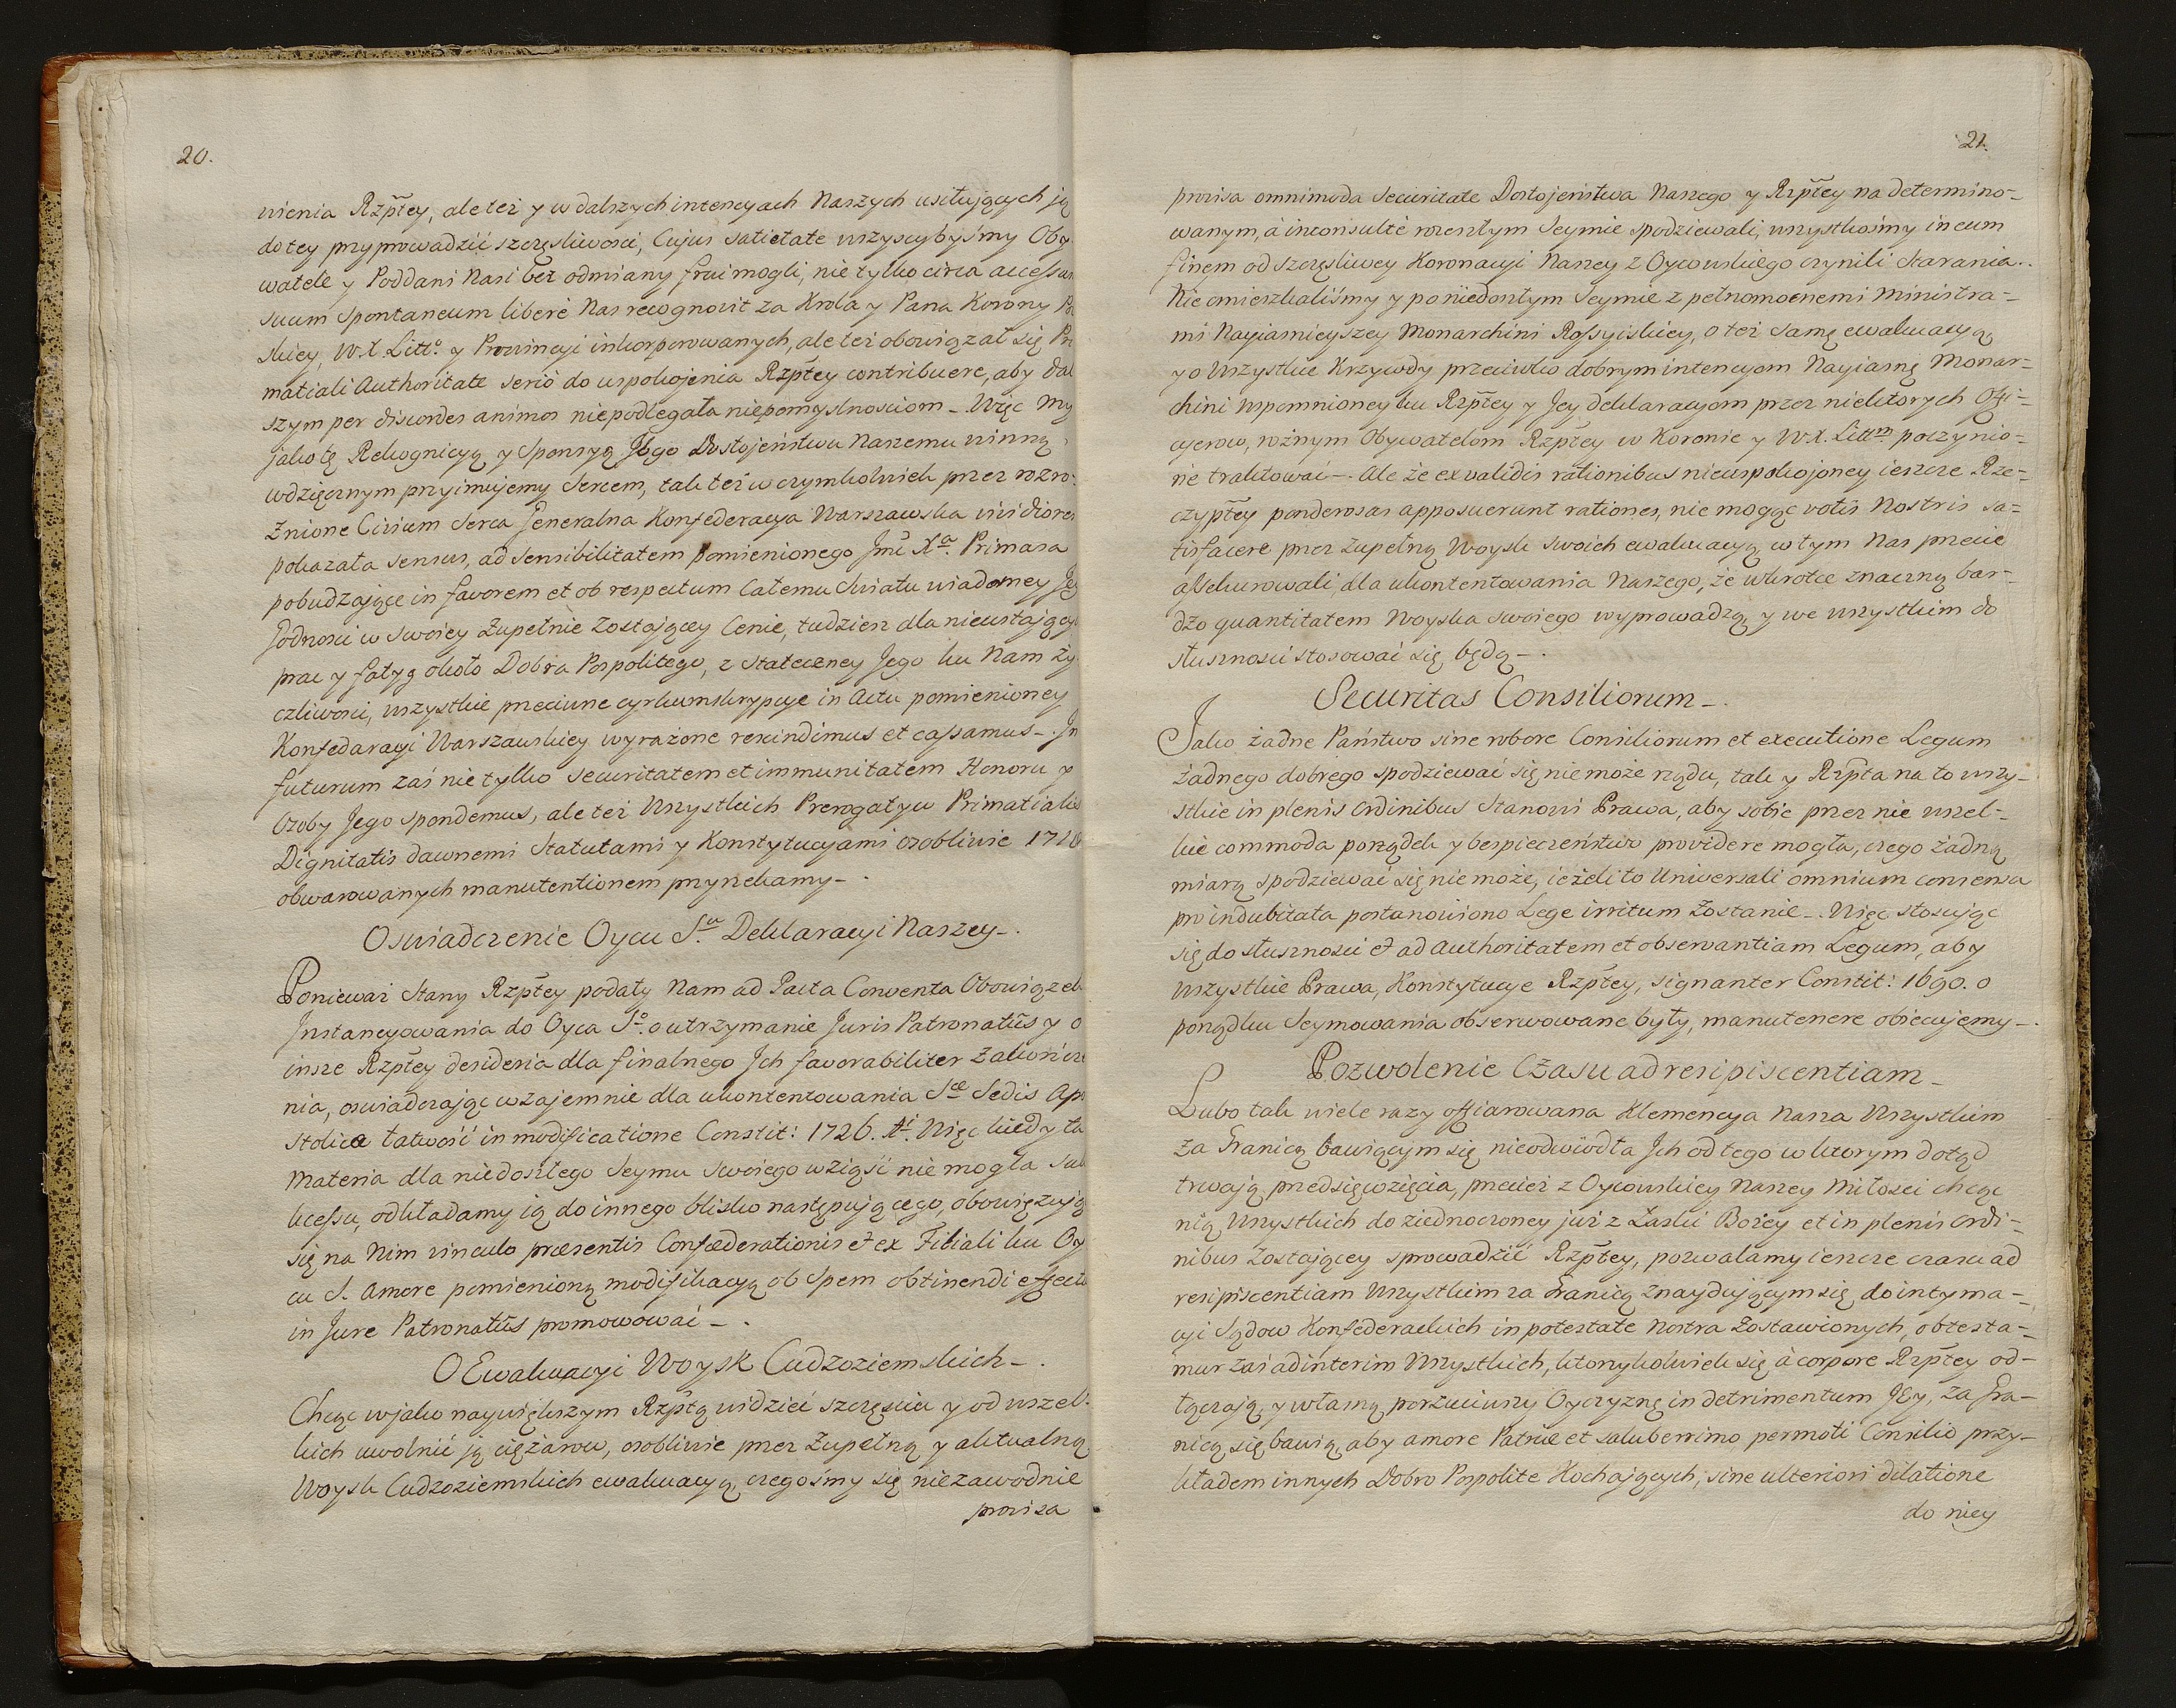 20.
nienia Rzptey, ale też y w dalszych intencyach Naszych usiłujących ją
do tey przyprowadzić szczęśliwości, Cujus satietate wszyscybyśmy Oby
watele y Poddani Nasi bez odmiany frui mogli, nie tylko circa accessum
suum spontaneum liberè Nas recognovit za Krola y Pana Korony Po
lskiey, W. X. Litt.o y Prowincyi inkorporowanych, ale też obowiązał się Pri
matiali Authoritate seriò do uspokojenia Rzptey contribuere, aby dal
szym per discordes animos niepodlegała niepomyslnosciom – Więc My
jako tę Rekognicyą y Sponsyą Jego Dostojeństwu Naszemu winną
wdzięcznym przyimujemy Sercem, tak też w czymkolwiek przez rozro-
żnione Civium Serca Generalna Konfederacya Warszawska vividiores
pokazała sensus, ad sensibilitatem pomienionego Jmć Xa. Primasa
pobudzające in favorem et ob respectum całemu Swiatu wiadomey Jeg
Godnosci w swoiey Zupełnie Zostającey Cenie, tudziesz dla nieustający
prac y fatyg około Dobra Pospolitego, z stateczney Jego ku Nam ży
czliwosci, wszystkie przeciwne cyrkumskrypcye in Actu pomienioney
Konfedaracyi Warszawskiey wyrażone rescindimus et cassamus –. In
futurum zaś nie tylko securitatem et immunitatem Honoru y
Ozoby Jego spondemus, ale też Wszystkich Prerogatyw Primatialis
Dignitatis dawnemi Statutami y Konstytucyami osobliwie 17
obwarowanych manutentionem przyrzekamy – .
Oswiadczenie Oycu S.u Deklaracyi Naszey – .
Poniewaz Stany Rzptey podały Nam ad Pacta Conventa Obowiązek
Instancyowania do Oyca S.o o utrzymanie Juris Patronatûs y o
insze Rzptey desideria dla finalnego Ich favorabiliter Zakończe
nia, oswiadczając wzajemnie dla ukontentowania S.æ Sedis Apo
stolicæ łatwość in modificatione Constit: 1726. Więc kiedy ta
Materia dla niedoszłego Seymu swoiego wziąść nie mogła suk
kcessu, odkładamy ią do innego blisko następującego, obowięzują
się na Nim vinculo præsentis Confæderationis et ex Filiali ku Oy
cu S. Amore pomienioną modyfikacyą ob Spem obtinendi effectu
in Jure Patronatûs promowować – .
O Ewakuacyi Woysk Cudzoziemskich – .
Chcąc w jako naywiękzszym Rzptą widzieć szczęściu y od wszel-
kich uwolnić ją ciężarow, osobliwie przez Zupełną y aktualną
Woysk Cudzoziemskich ewakuacyą, czegosmy się niezawodnie
provisa
21.
provisa omnimoda securitate Dostojeństwa Naszego y Rzptey na determino-
wanym, à inconsultè rozeszłym Seymie spodziewali, wszystkośmy in eum
finem od szczęśliwey Koronacyi Naszey z Oycowskiego czynili starania..
Nie omieszkaliśmy y po niedoszłym Seymie z pełnomocnemi Ministra-
mi Nayiasnieyszey Monarchini Rossyiskiey, o też samę ewakuacyą
y o Wszystkie Krzywdy przeciwko dobrym intencyom Nayiasnę Monar-
chini wspomnioney ku Rzptey y Jey deklaracyom przez niektorych Offi-
cyerow, rożnym Obywatelom Rzptey w Koronie y W. X. Litt.m poczynio-
ne traktować –. Ale że ex validis rationibus nieuspokojoney ieszcze Rze-
czyptey ponderosas apposuerunt rationes, nie mogąc votis Nostris sa-
tisfacere przez Zupełną Woysk swoich ewakuacyą, w tym Nas przecie
assekurowali, dla ukontentowania Naszego, że wkrotce znaczną bar-
dzo quantitatem Woyska swoiego wyprowadzą y we wszystkim do
słuszności stosować się będą – .
Securitas Consiliorum – .
Jako żadne Państwo sine robore Consiliorum et executione Legum
żadnego dobrego spodziewać się nie może rządu, tak y Rzpta na to wszy-
stkie in plenis Ordinibus Stanowi Prawa, aby sobie przez nie wszel-
kie commoda porządek y bespieczeństwo providere mogła, czego żadną
miarą spodziewać się nie może, ieżeli to Universali omnium consensu
pro indubitata postanowiono Lege irritum Zostanie –. Więc stosując
się do słuszności et ad authoritatem et observantiam Legum, aby
wszystkie Prawa, Konstytucye Rzptey, signanter Constit: 1690. o
porządku Seymowania obserwowane były, manutenere obiecujemy –.
Pozwolenie Czasu ad resipiscentiam –
Lubo tak wiele razy offiarowana Klemencya Nasza Wszystkim
za Granicą bawiącym się nieodwiodła Ich od tego w ktorym dotąd
trwają przedsięwzięcia, przecież z Oycowskiey Naszey Miłosci chcąc
nią Wszystkich do ziednoczoney już z Łaski Bożey et in plenis Ordi-
nibus Zostającey sprowadzić Rzptey, pozwalamy ieszcze czasu ad
resipiscentiam Wszystkim za Granicą znayduiącym się do intyma-
cyi Sądow Konfederackich in potestate Nostra Zostawionych, obtesta-
mur zaś ad interim Wszystkich, ktorzykolwiek się à corpore Rzptey od-
łączają, y własną porzuciwszy Oyczyznę in detrimentum Jey, za Gra-
nicą się bawią, aby amore Patriæ et saluberrimo permoti Consilio przy-
kładem innych Dobro Pospolite Kochających, sine ulteriori dilatione
do niey